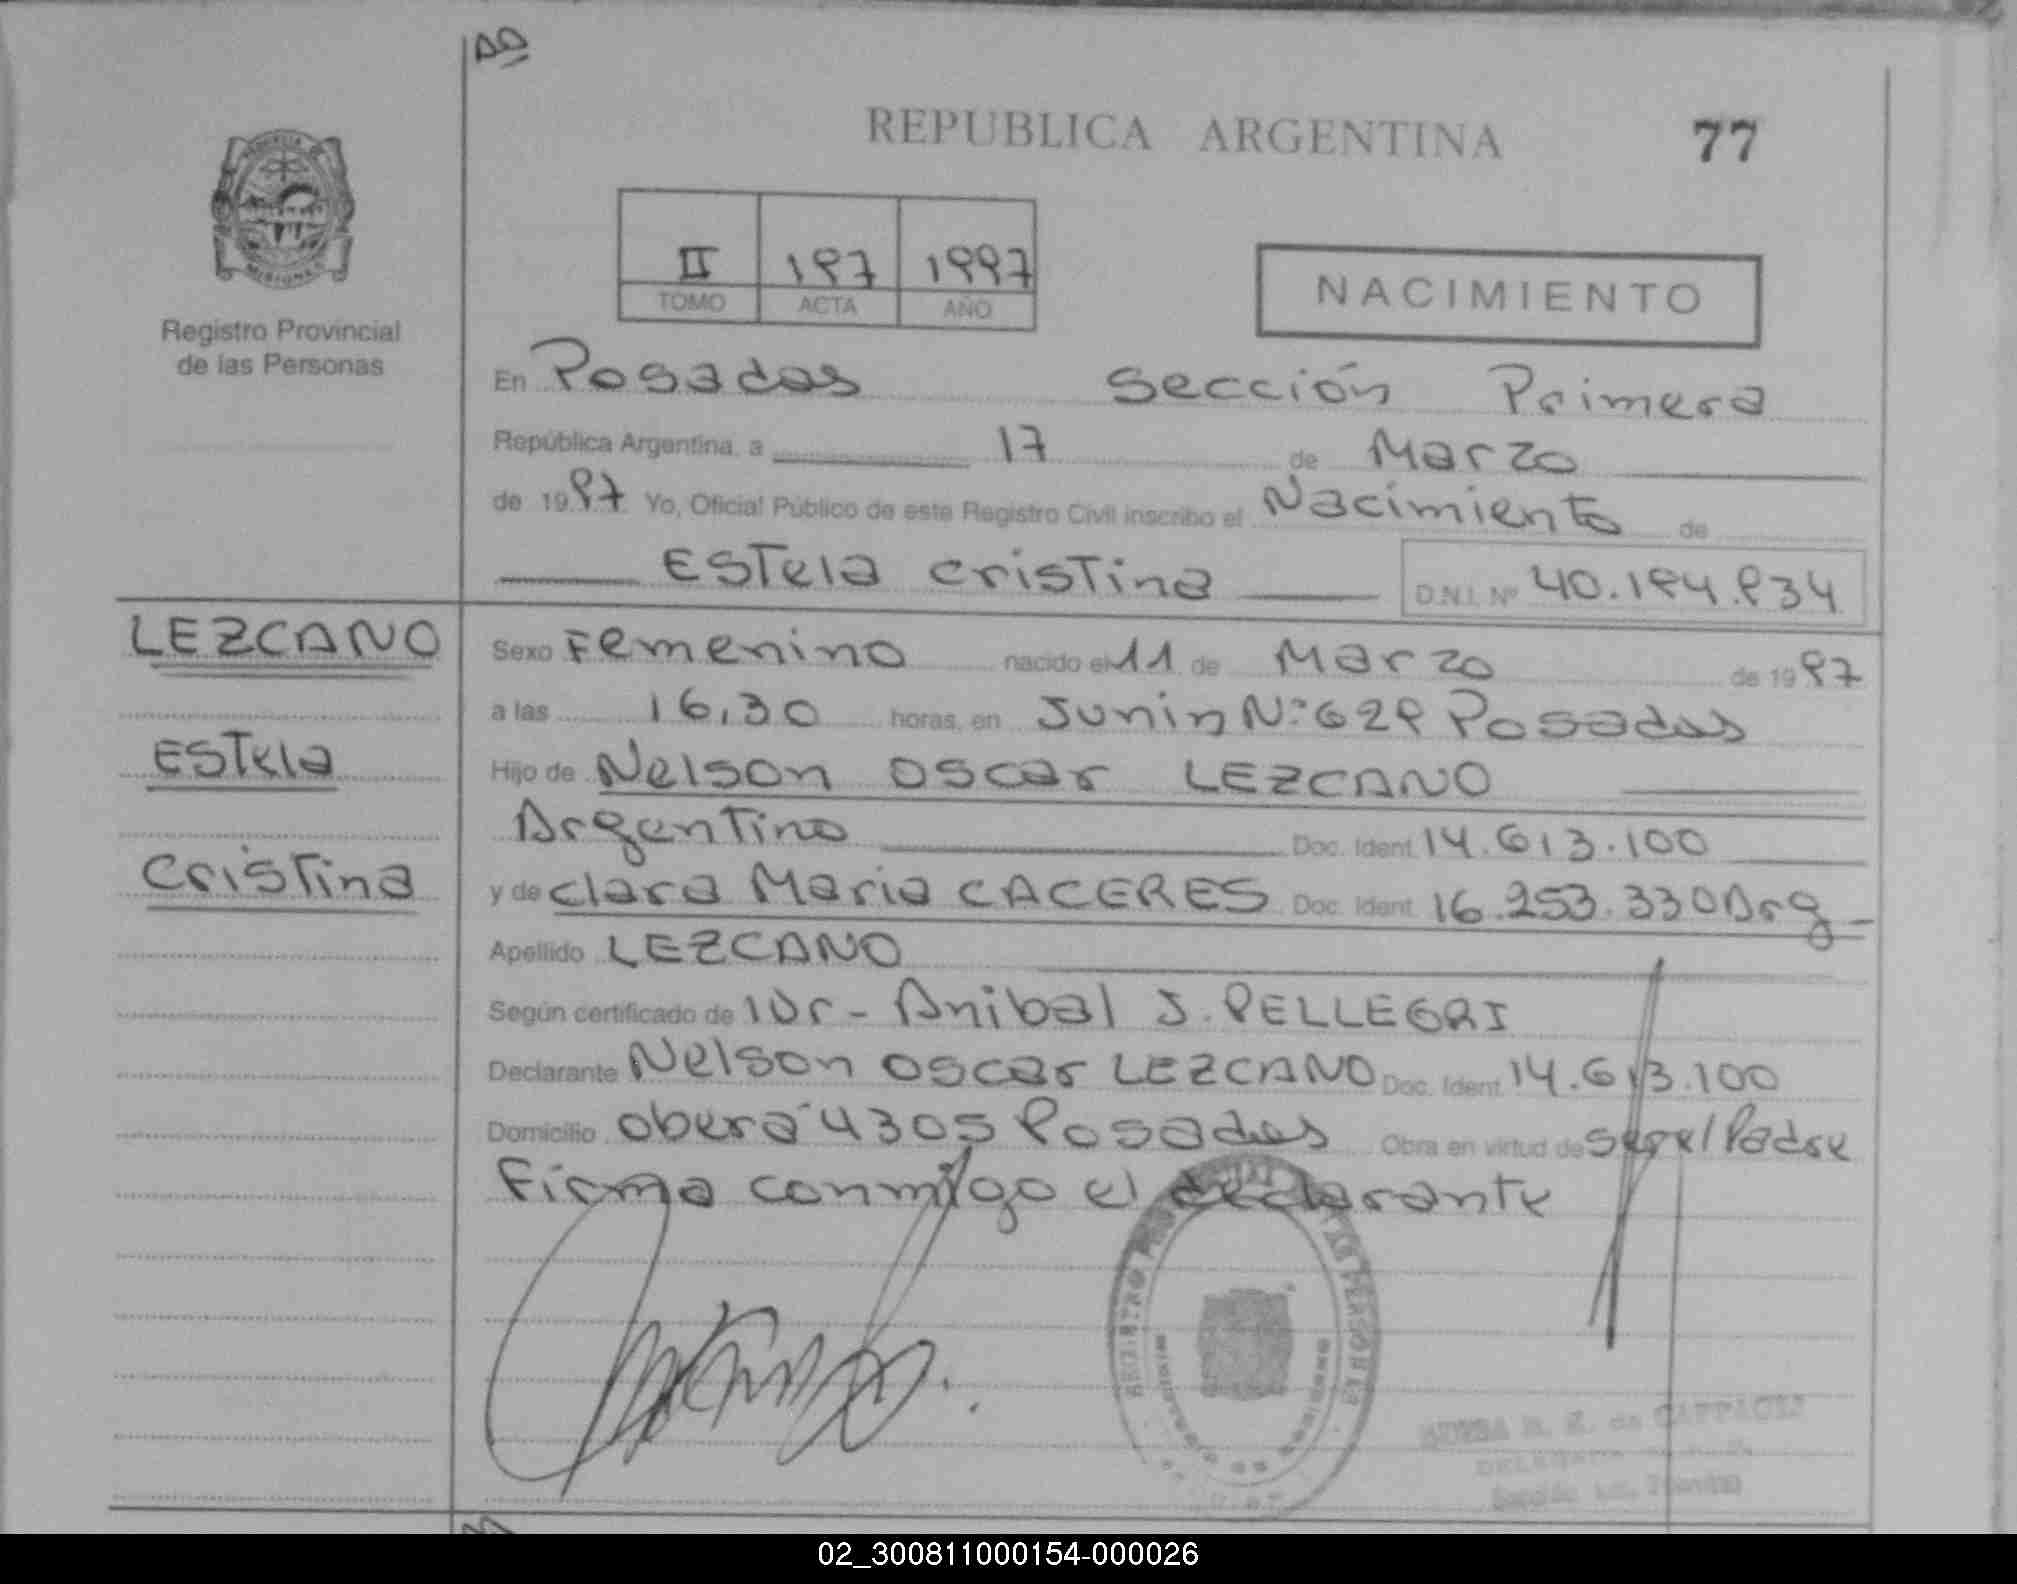 REPUBLICA ARGENTINA
77
Registro Provincial
de las Personas
II 197 1997
TOMO ACTA AÑO
NACIMIENTO
En Posadas Sección Primera
República Argentina, a 17 de Marzo
de 1997 Yo, Oficial Público de este Registro Civil inscribo el Nacimiento de
Estela Cristina D.N.I. Nº 40.194.934
LEZCANO
Estela
Cristina
Sexo Femenino nacido el 11 de Marzo de 1997
a las 16,30 horas, en Junin Nº 629 Posadas
Hijo de Nelson Oscar LEZCANO
Argentino Doc. Ident. 14.613.100
y de Clara Maria CACERES Doc. Ident. 16.253.330 Arg
Apellido LEZCANO
Según certificado de Anibal J. PELLEGRI
Declarante Nelson Oscar LEZCANO Doc. Ident. 14.613.100
Domicilio Oberá 4305 Posadas Obra en virtud de ser el Padre
Firma conmigo el declarante
02_300811000154-000026